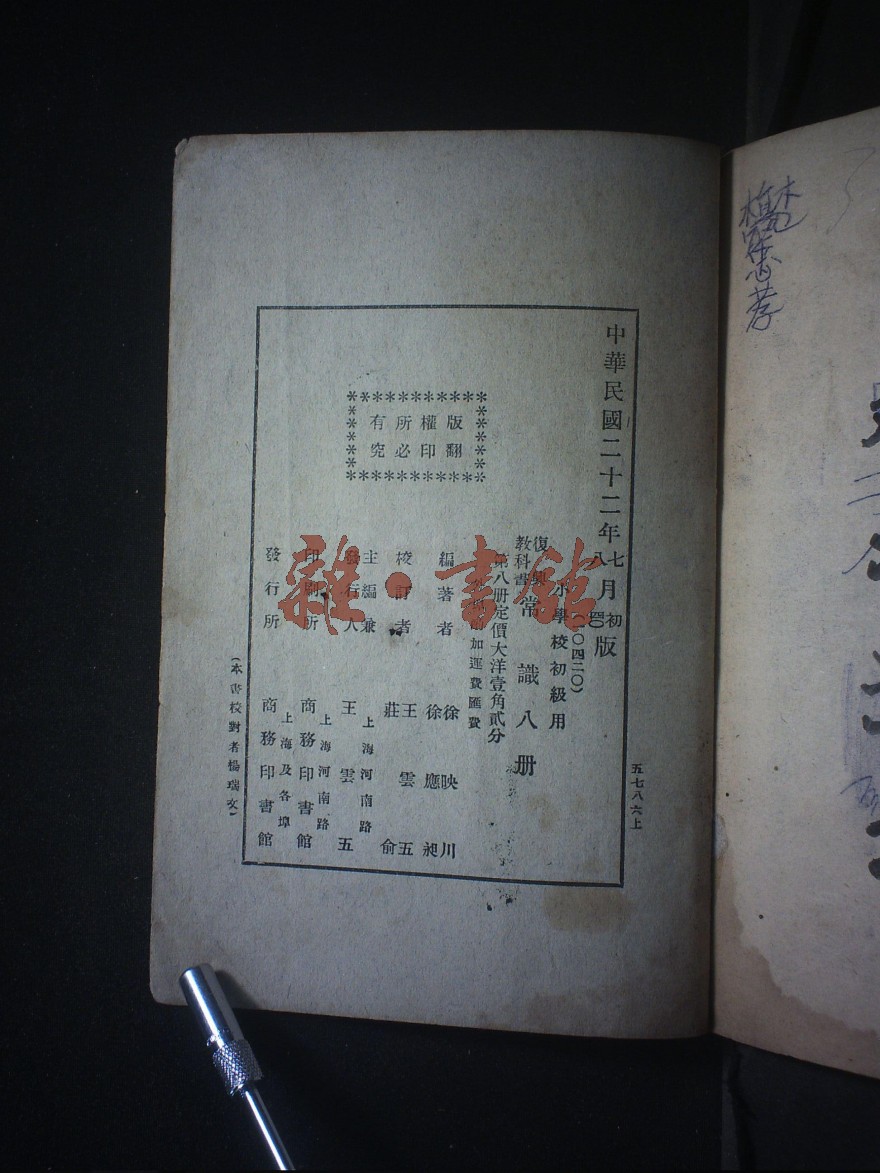 中華民國二十二年七月初版
八
復興教科書
小學校初級用
常識八册
第八册定價大洋壹角貳分
加運費匯費
版權所有
翻印必究
編著者 徐映川
徐應昶
校訂者 王雲五
莊俞
主編兼發行人 王雲五
上海河南路
印刷所 商務印書館
上海河南路
發行所 商務印書館
上海及各埠
(本書校對者楊瑞文)
五七八六上
雜·書館